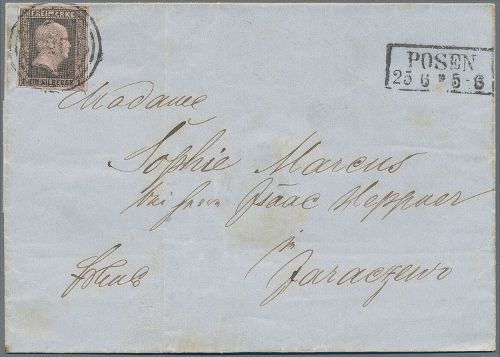 FREIMARKE
EIN SILBERGR.
POSEN
25 6 * 5-6
Madame
Sophie Marcus
bei Herrn Isaac Heppner
in
Jaraczewo